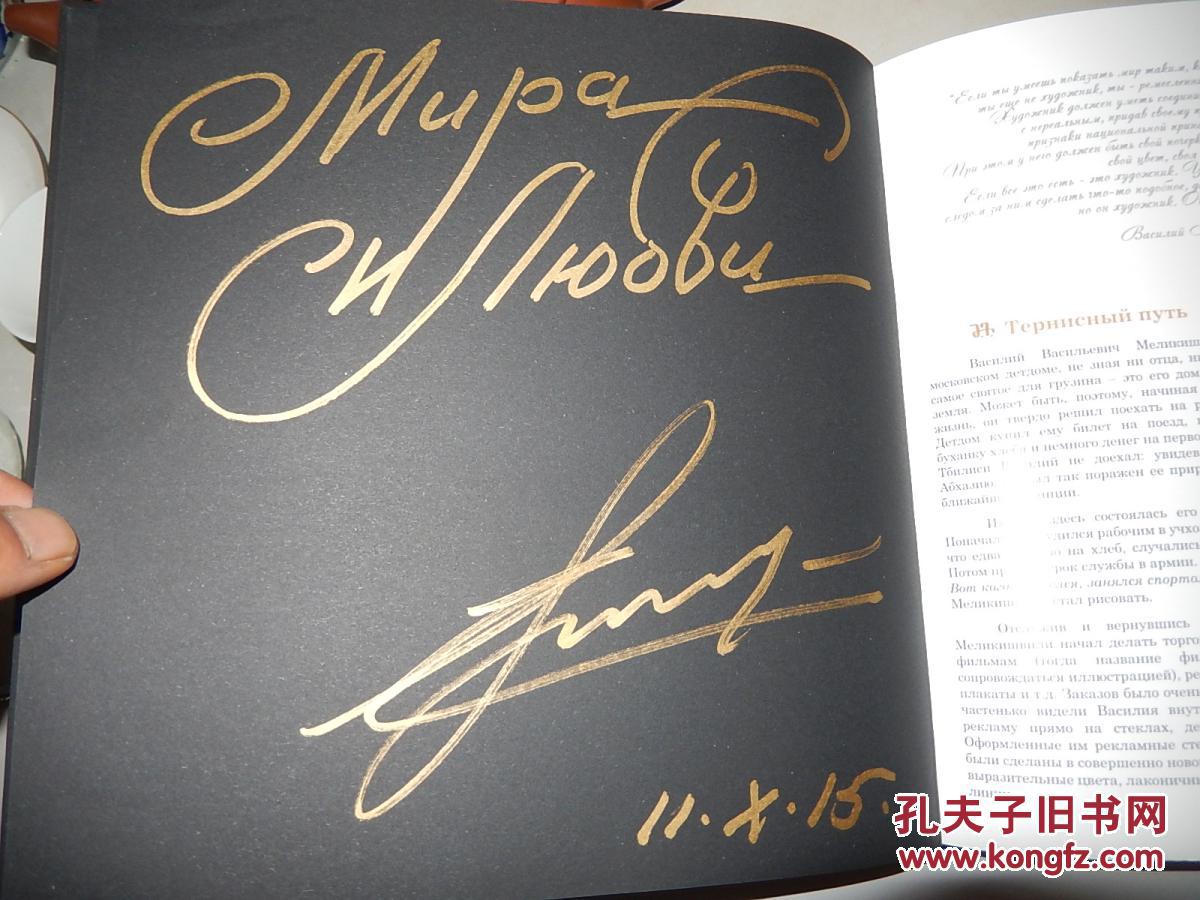 Мира
и Любви
11.X.15.
"Если ты умеешь показать мир таким, к
ты еще не художник, ты - ремесленни
Художник должен уметь соедини
с нереальным, придав своему
признаки национальной прин
При этом у него должен быть свой почер
свой цвет, свол
Если все это есть - это художник.
следом за ним сделать что-то подобное,
но он художник.
Василий
Тернисный путь
Василий Васильевич Меликиш
московском детдоме, не зная ни отца, н
самое святое для грузина – это его дом
земля. Может быть, поэтому, начиная
жизнь, он твердо решил поехать на р
Детдом купил ему билет на поезд,
буханку хлеба и немного денег на перво
Тбилиси не доехал: увидев
Абхазию, так поражен ее прир
ближайш
здесь состоялась его
Поначал удился рабочим в учхо
что едва на хлеб, случались
Потом рок службы в армии.
Вот ког занялся спорто
Меликиш тал рисовать.
и вернувшись
Меликишвили начал делать торго
фильмам (тогда название фил
сопровождаться иллюстрацией), ре
плакаты и т.д. Заказов было очен
частенько видели Василия внут
рекламу прямо на стеклах, де
Оформленные им рекламные сте
были сделаны в совершенно ново
выразительные цвета, лаконичн
линии
孔夫子旧书网
www.kongfz.com